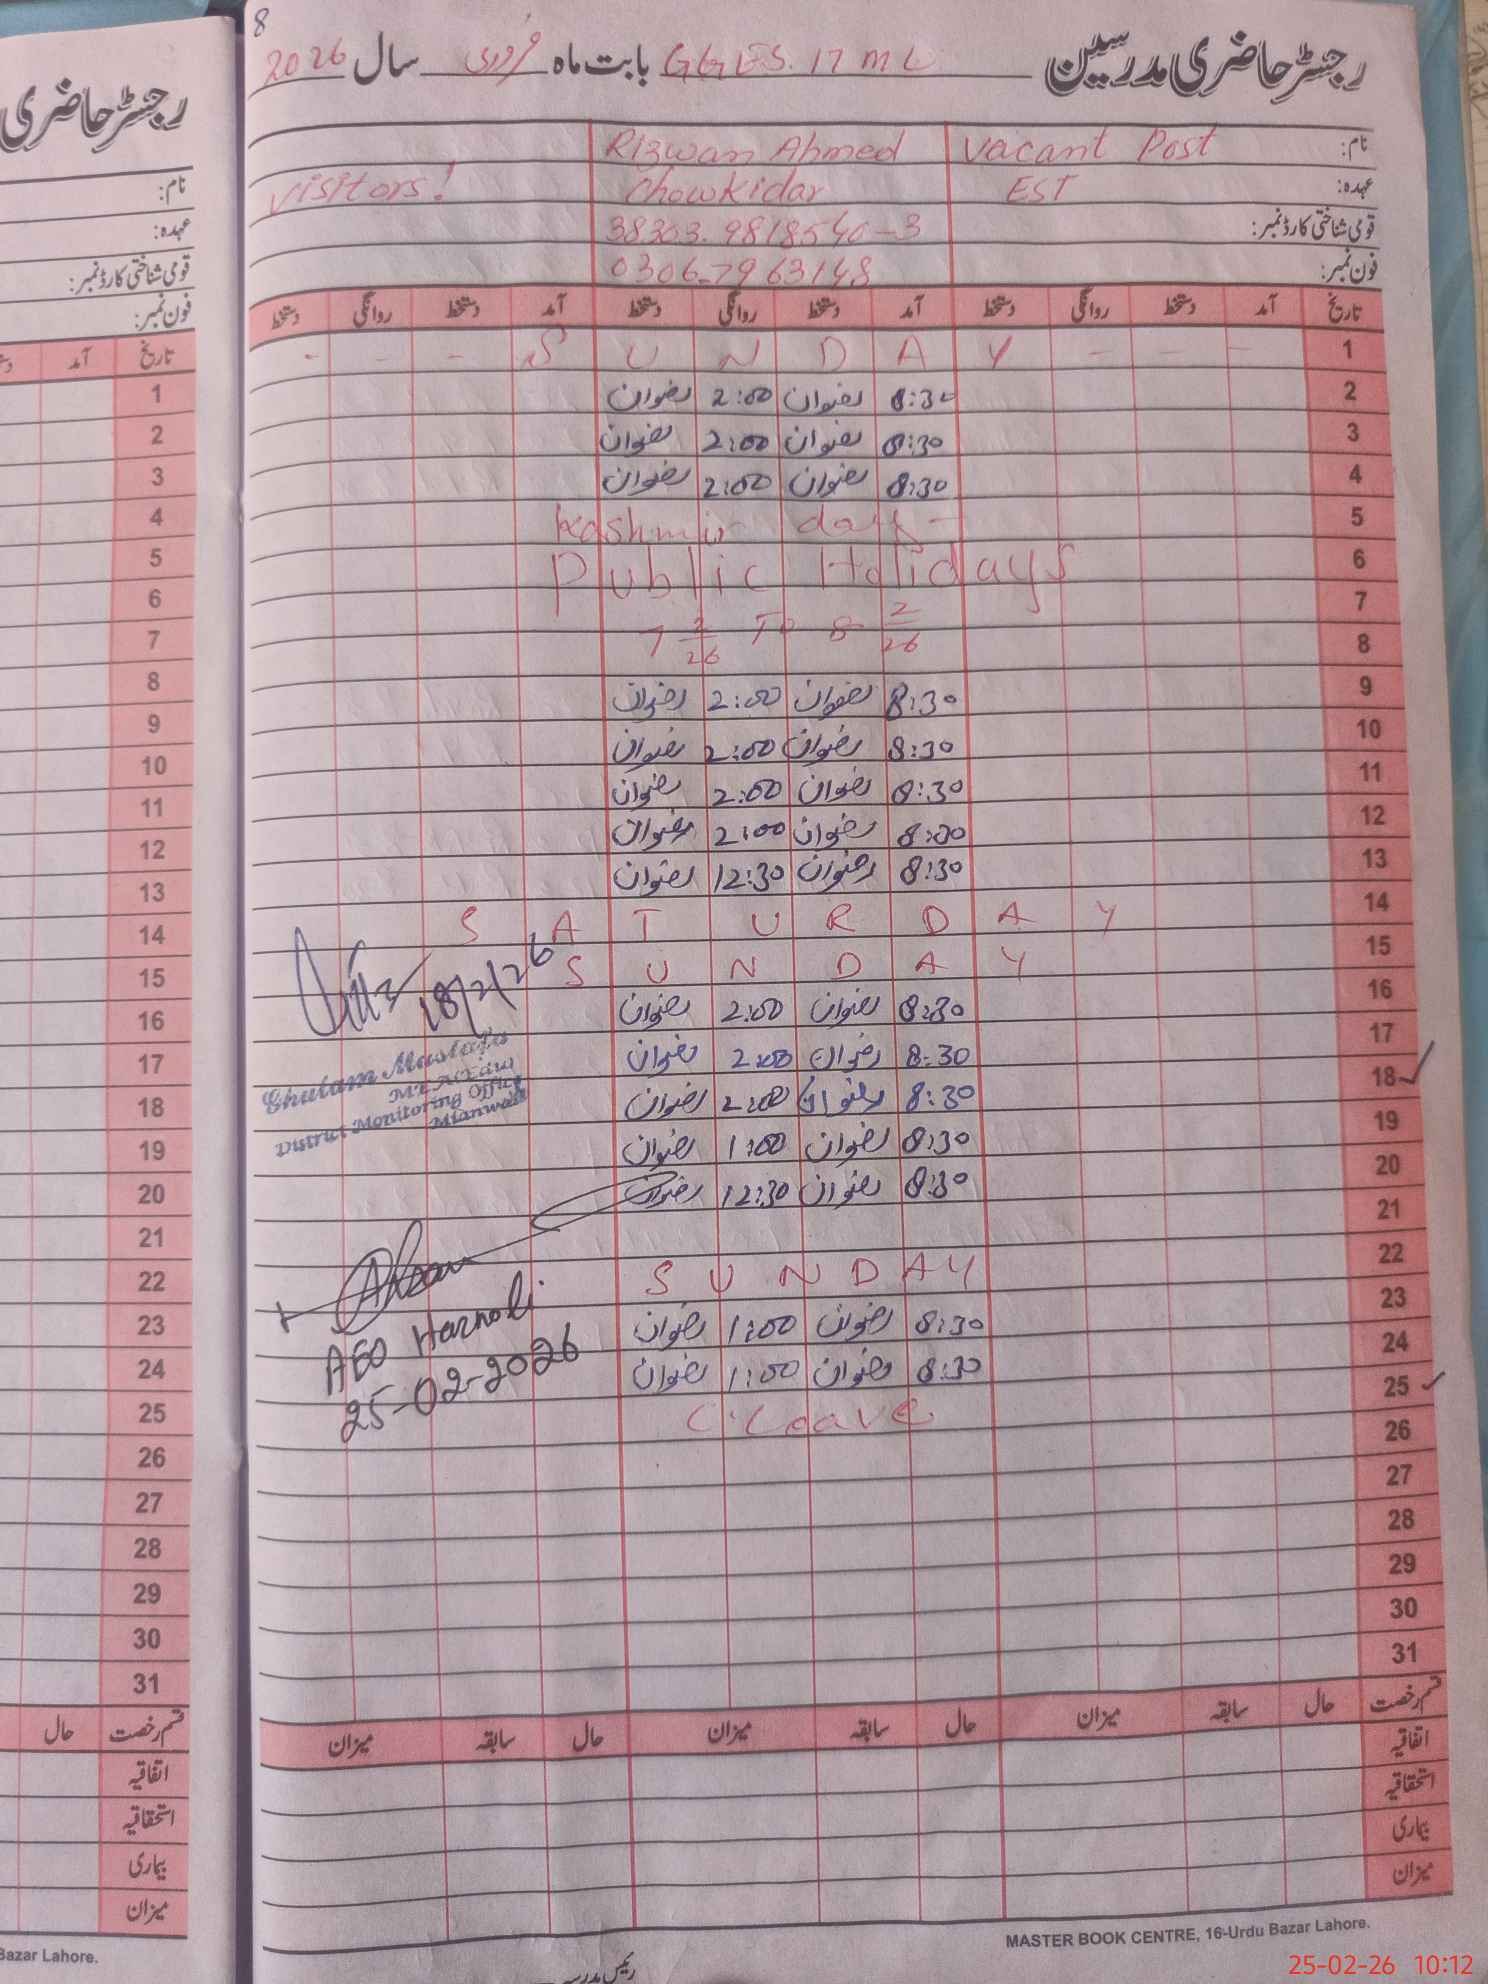 8
رجسٹر حاضری مدرسین GGES. 17 ML بابت ماہ فروری سال 2026
نام: Vacant Post Rizwan Ahmed
عہدہ: EST Chowkidar visitors!
قومی شناختی کارڈ نمبر: 38303-9818540-3
فون نمبر: 0306-7963148
تاریخ آمد دستخط روانگی دستخط آمد دستخط روانگی دستخط آمد دستخط روانگی دستخط
1 - - - S U N D A Y - - -
2 8:30 رضوان 2:00 رضوان
3 8:30 رضوان 2:00 رضوان
4 8:30 رضوان 2:00 رضوان
5 Kashmir day -
6 Public Holidays
7
8 7 2/26 To 8 2/26
9 8:30 رضوان 2:00 رضوان
10 8:30 رضوان 2:00 رضوان
11 8:30 رضوان 2:00 رضوان
12 8:30 رضوان 2:00 رضوان
13 8:30 رضوان 12:30 رضوان
14 S A T U R D A Y
15 S U N D A Y
16 8:30 رضوان 2:00 رضوان
17 8:30 رضوان 2:00 رضوان
18 8:30 رضوان 2:00 رضوان
19 8:30 رضوان 1:00 رضوان
20 8:30 رضوان 12:30 رضوان
21
22 S U N D A Y
23 8:30 رضوان 1:00 رضوان
24 8:30 رضوان 1:00 رضوان
25 C'Leave
26
27
28
29
30
31
18/2/26
Ghulam Mustafa
District Monitoring Office
Mianwali
AEO Harnoli
25-02-2026
قسم رخصت حال سابقہ میزان حال سابقہ میزان حال سابقہ میزان
اتفاقیہ
استحقاقیہ
بیماری
میزان
MASTER BOOK CENTRE, 16-Urdu Bazar Lahore.
رجسٹر حاضری
نام:
عہدہ:
قومی شناختی کارڈ نمبر:
فون نمبر:
تاریخ آمد
1
2
3
4
5
6
7
8
9
10
11
12
13
14
15
16
17
18
19
20
21
22
23
24
25
26
27
28
29
30
31
قسم رخصت حال
اتفاقیہ
استحقاقیہ
بیماری
میزان
Bazar Lahore.
25-02-26 10:12